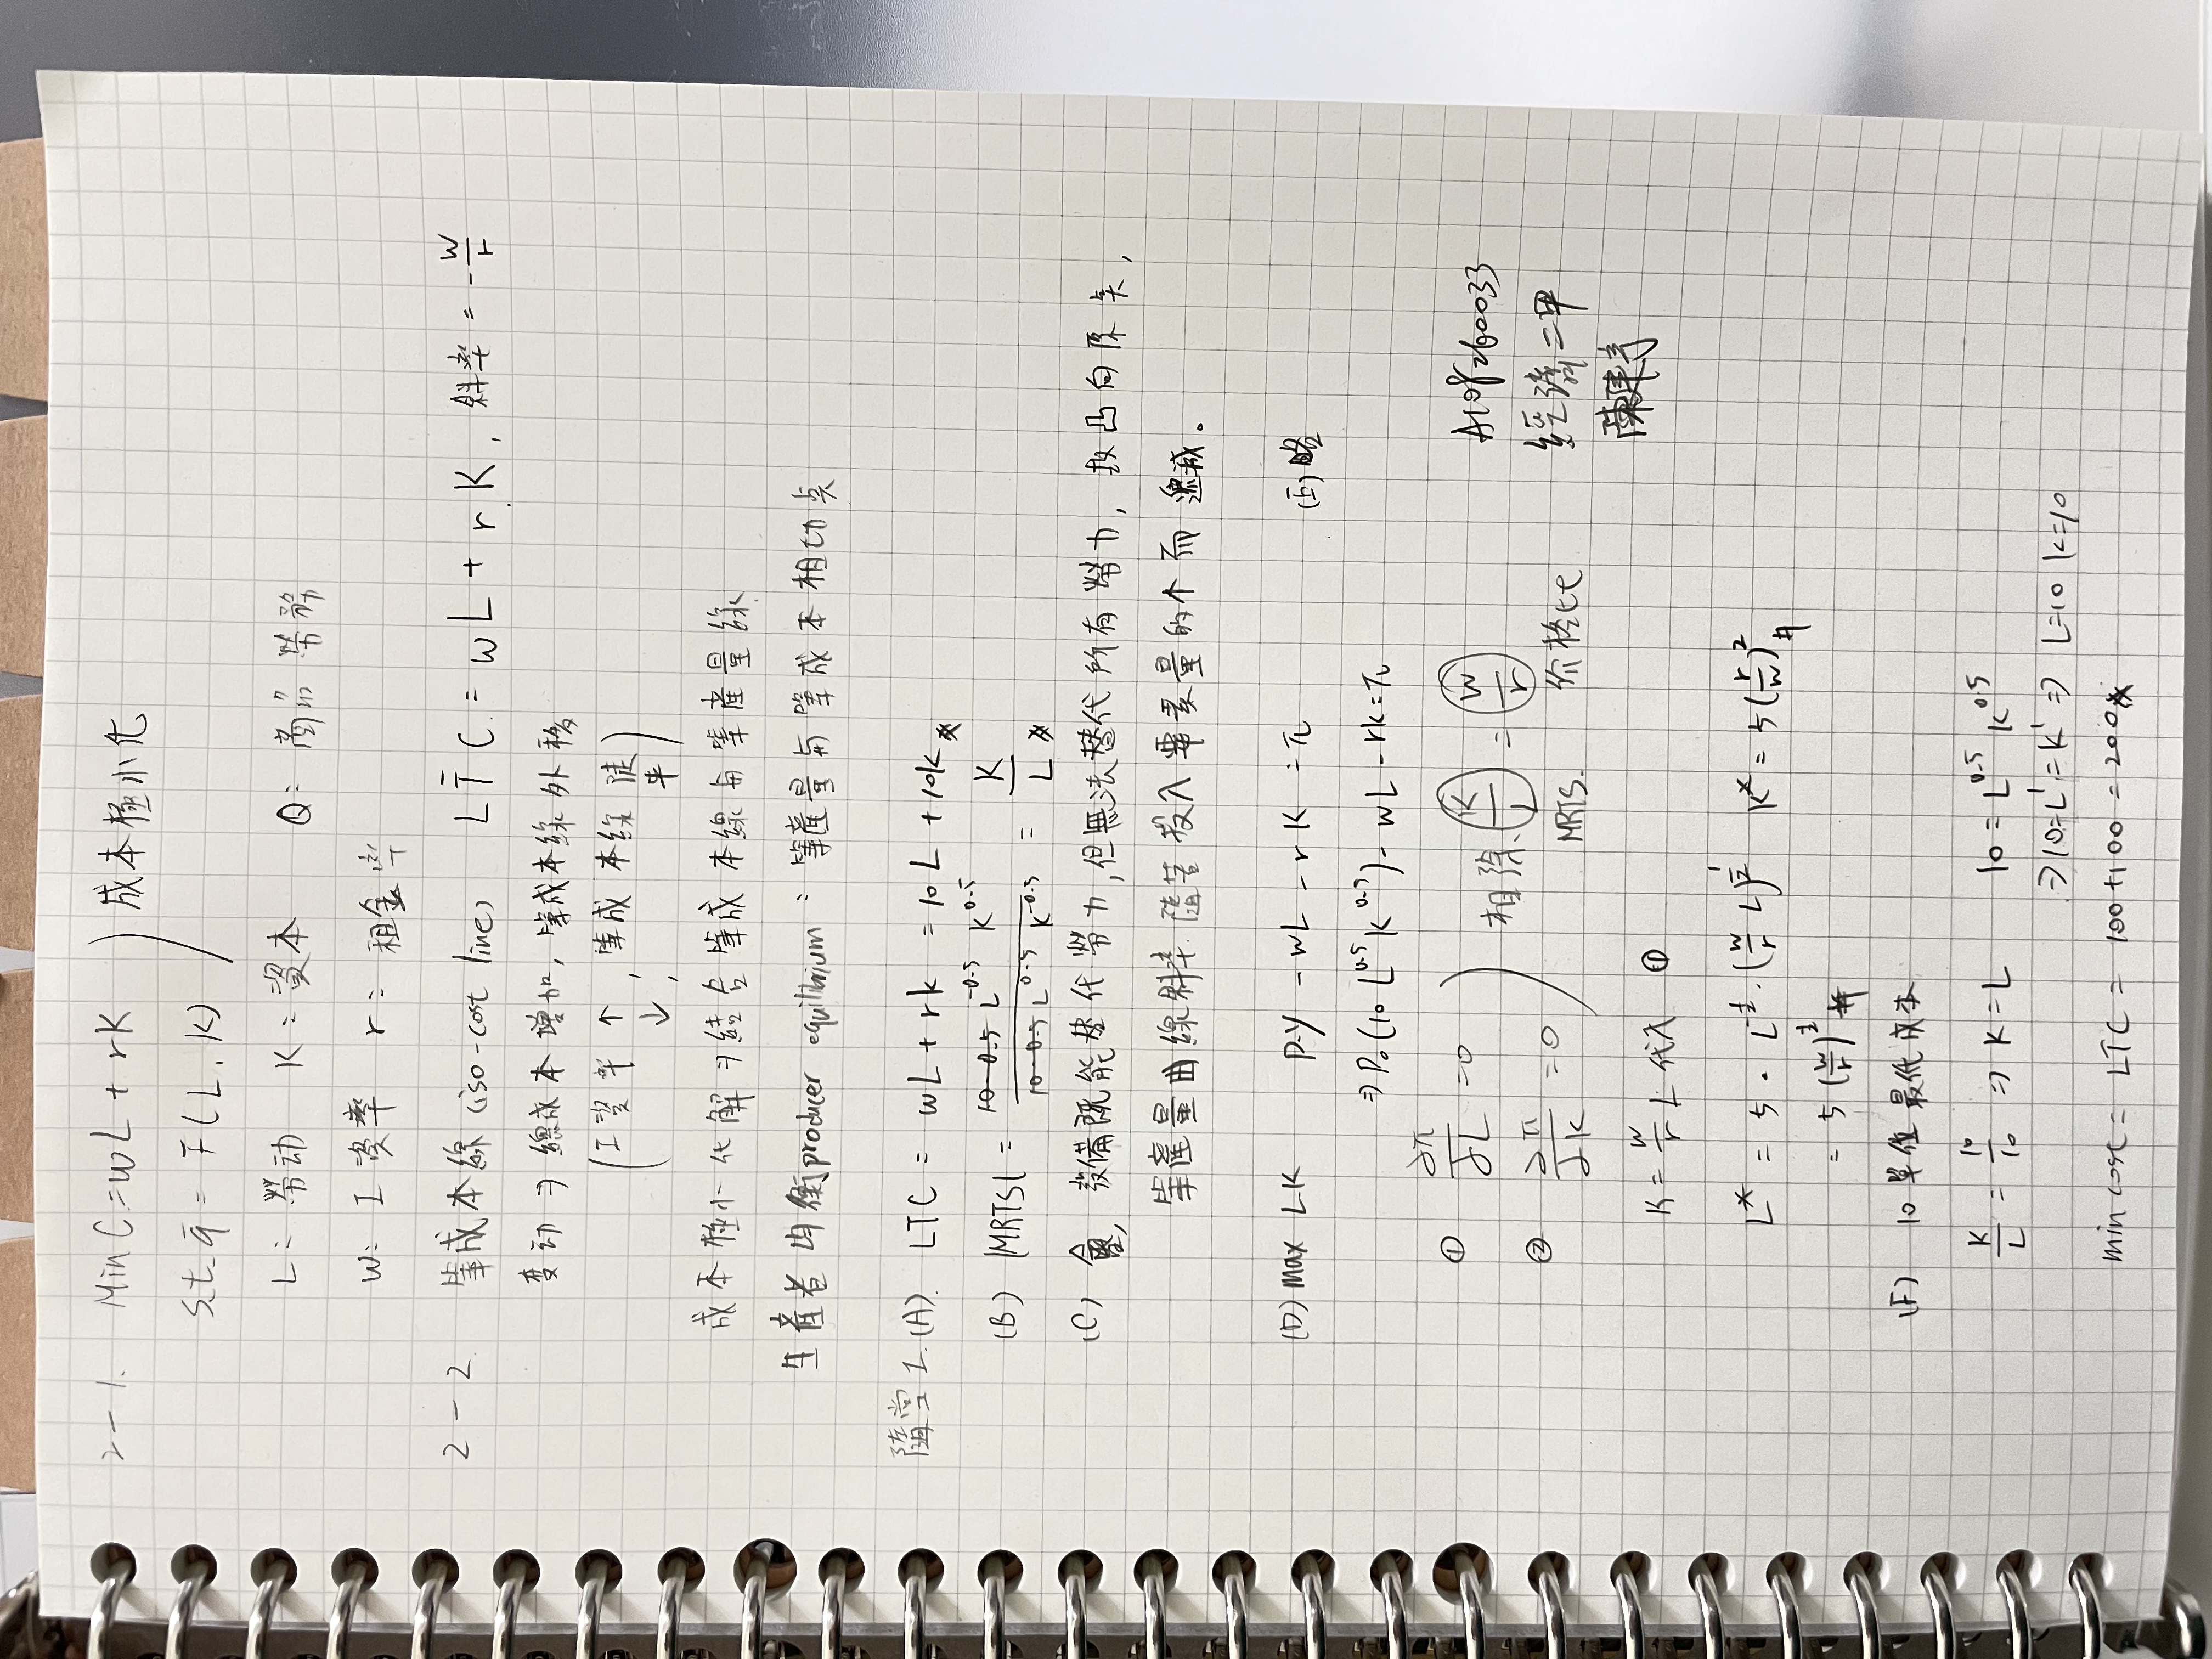 2-1. Min C = wL + rK ) 成本極小化
s.t. q̄ = F(L, K)
L: 勞动 K: 資本 Q: 商品勞務
w: 工資率 r: 租金率
2-2. 等成本線 (iso-cost line) LT̄C = wL + rK, 斜率 = -w/r
变动 ⇒ 總成本增加, 等成本線外移
(工資率 ↑, 等成本線 陡
↓, 平)
成本極小化解 ⇒ 結合等成本線与等產量線
生產者均衡 producer equilibrium: 等產量与等成本相切点
隨堂1. (A). LTC = wL + rk = 10L + 10k
(B) |MRTS| = (10·0.5 L^-0.5 K^0.5)/(10·0.5 L^0.5 K^-0.5) = K/L
(C) 會, 設備既能替代勞力, 但無法替代所有勞力, 故凸向原点,
等產量曲線斜率隨著投入要素量的↑而遞減。
(D) max LK P·y - wL - rK = π (E) 略
⇒ P·(10 L^0.5 K^0.5) - wL - rk = π
① ∂π/∂L = 0
② ∂π/∂K = 0 ) 相除. K/L = w/r
MRTS. 价格比
A108260033
經濟二甲
K = w/r L 代入 ①
L* = 5 · L^-1/2 · (w/r L)^1/2 K* = 5(r/w)^2
= 5 (w/r)^1/2
(F) 10單位最低成本
K/L = 10/10 ⇒ K = L 10 = L^0.5 K^0.5
⇒ 10 = L^1 = K^1 ⇒ L=10 k=10
min cost = LTC = 100 + 100 = 200